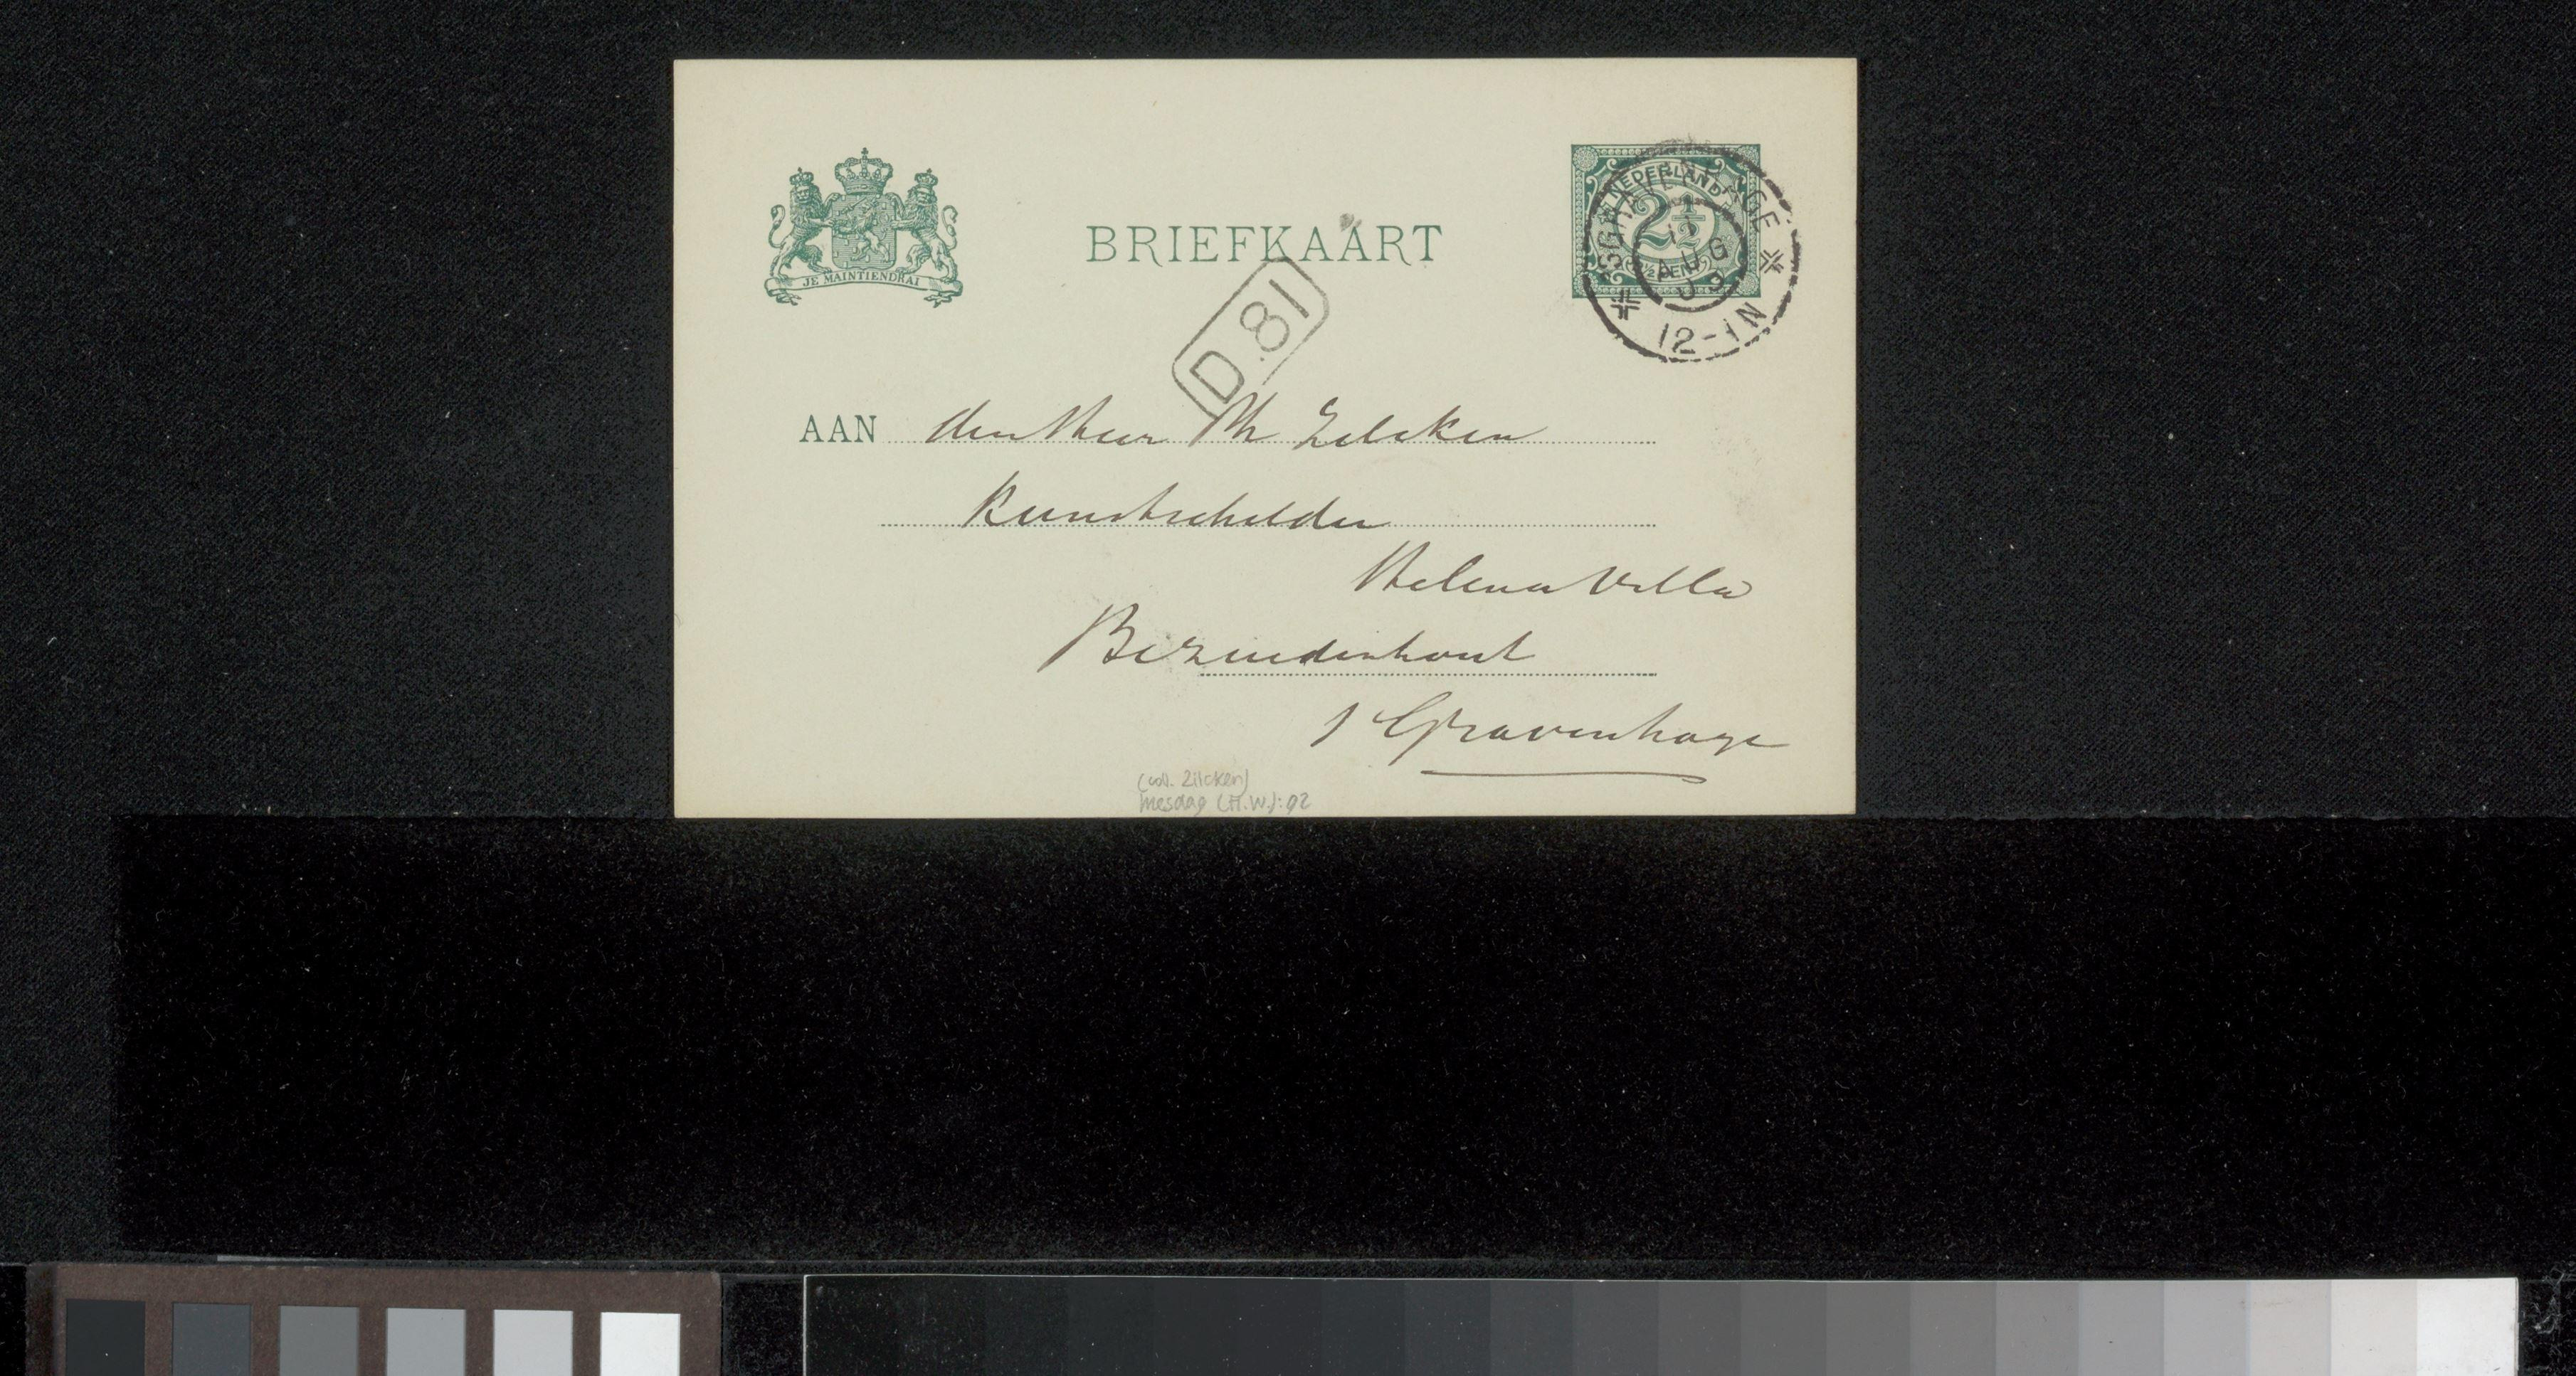 JE MAINTIENDRAI
BRIEFKAART
NEDERLAND
2½
2½ CENT
'SGRAVENHAGE
AUG
12-1N
D.81
AAN den Heer Ph Zilcken
Kunstschilder
Helena Villa
Bezuidenhout
s Gravenhage
(coll. Zilcken)
Mesdag (H.W.): 92